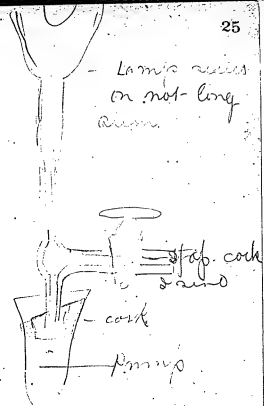 25
Lamp
on not long
stop. cock
cork
Pump